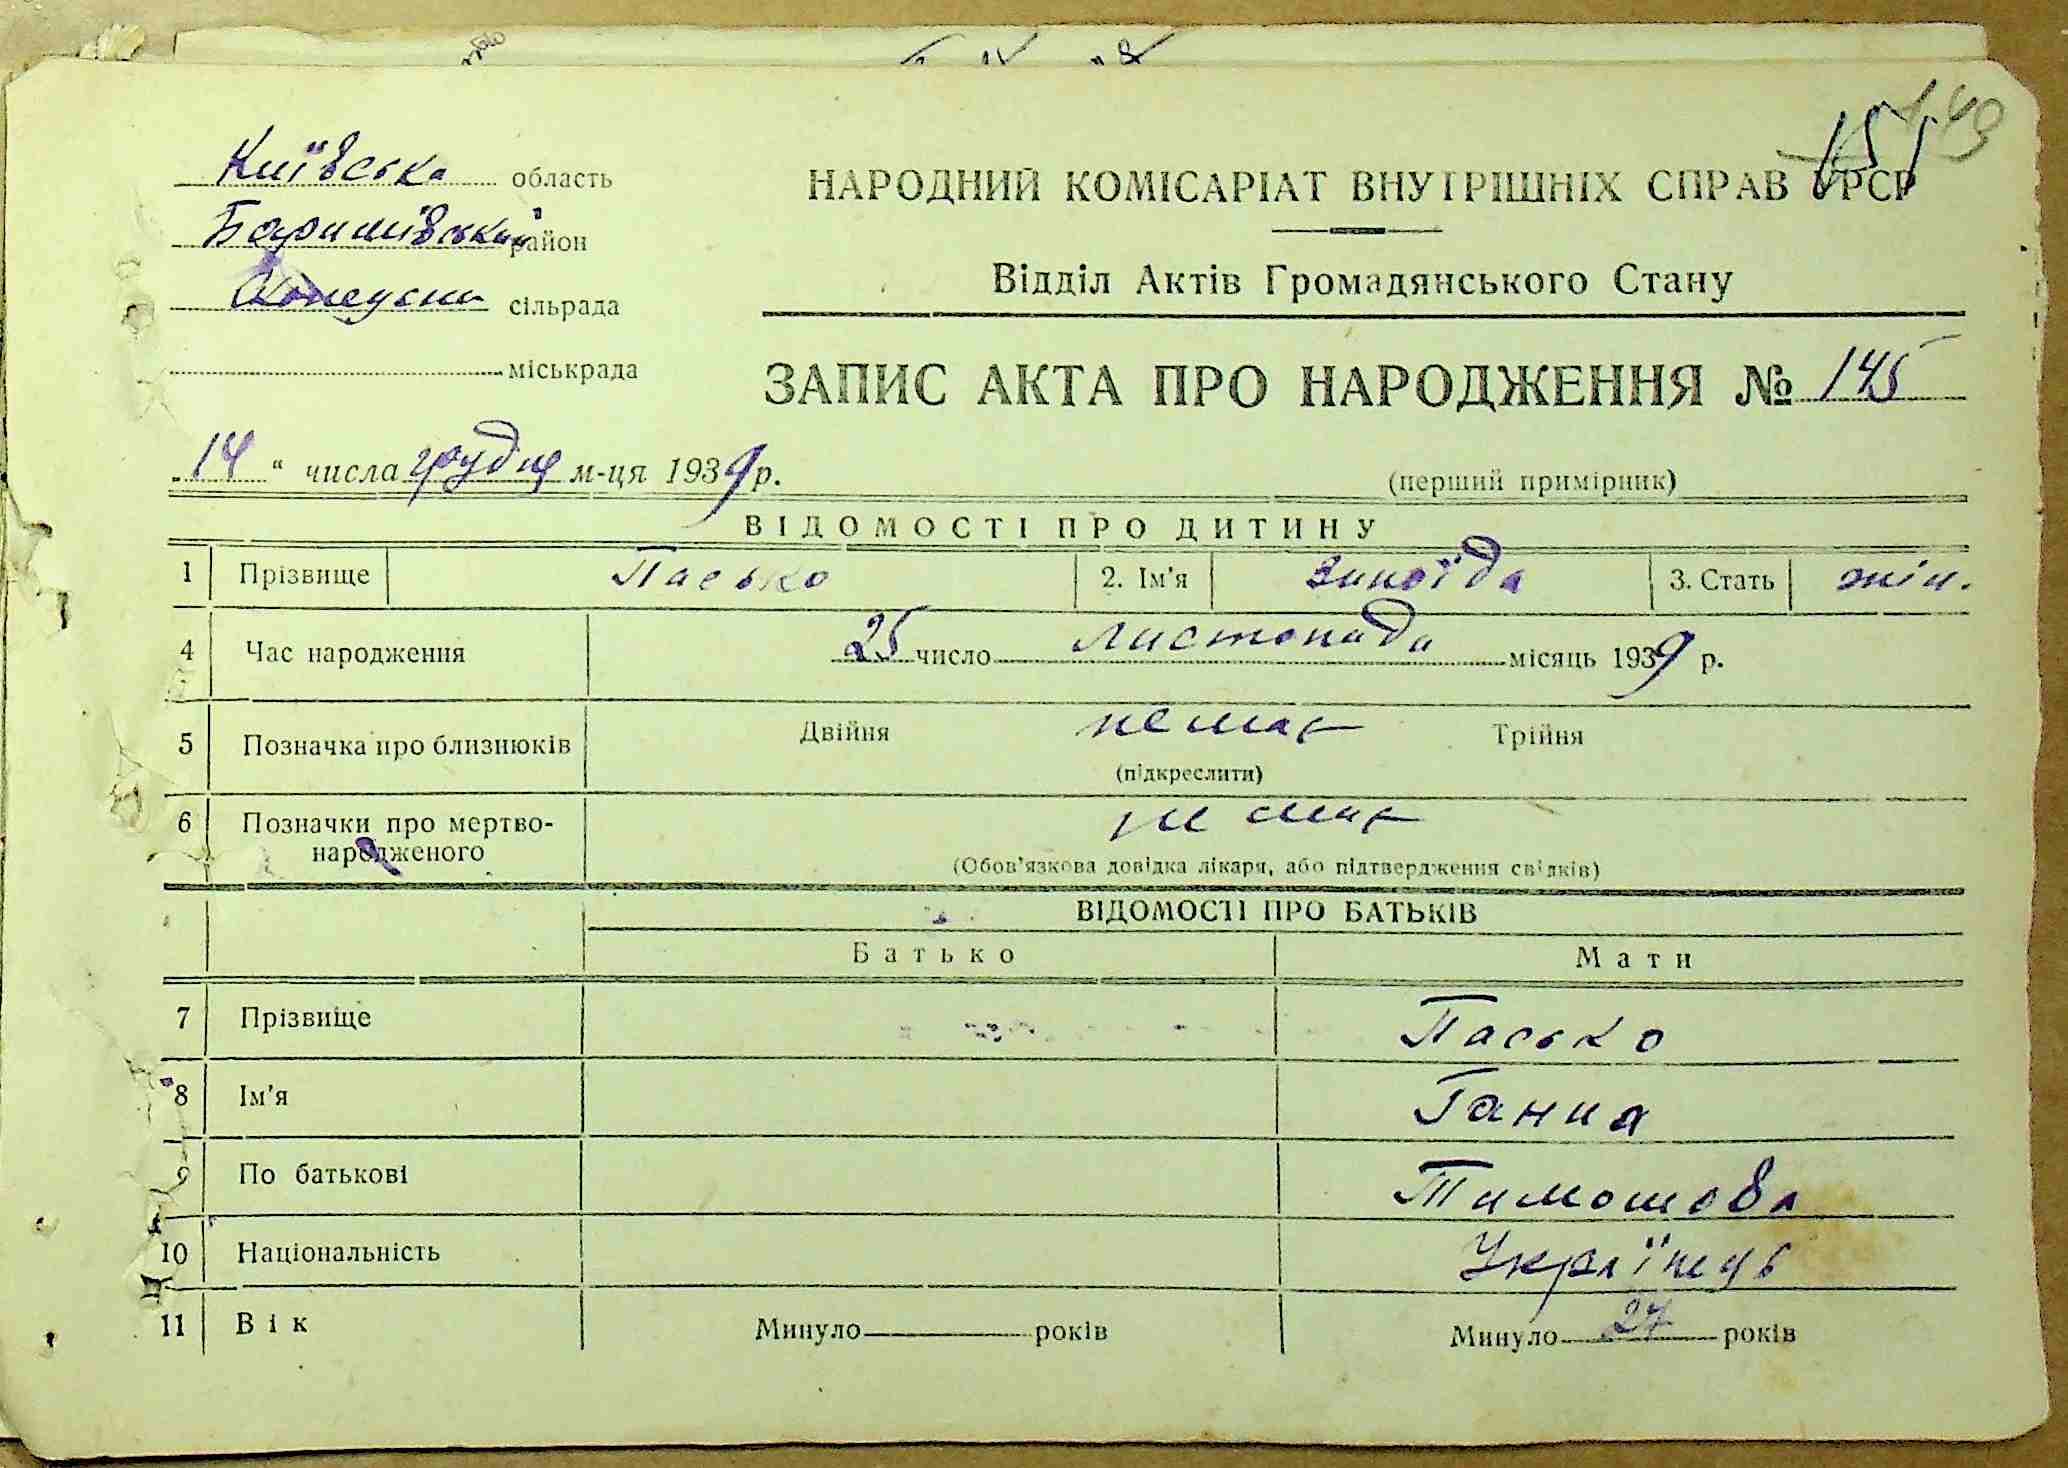 149
151
Київська область
Баришівський район
сільрада
міськрада
НАРОДНИЙ КОМІСАРІАТ ВНУТРІШНІХ СПРАВ УРСР
Відділ Актів Громадянського Стану
ЗАПИС АКТА ПРО НАРОДЖЕННЯ № 145
„14“ числа грудня м-ця 1939 р.
(перший примірник)
ВІДОМОСТІ ПРО ДИТИНУ
1 Прізвище Пасько 2. Ім'я Зиноїда 3. Стать жін.
4 Час народження 25 число листопада місяць 1939 р.
5 Позначка про близнюків Двійня немає Трійня
(підкреслити)
6 Позначки про мертво-
народженого немає
(Обов'язкова довідка лікаря, або підтвердження свідків)
ВІДОМОСТІ ПРО БАТЬКІВ
Батько Мати
7 Прізвище Пасько
8 Ім'я Ганна
9 По батькові Тимошова
10 Національність Українць
11 Вік Минуло років Минуло 27 років